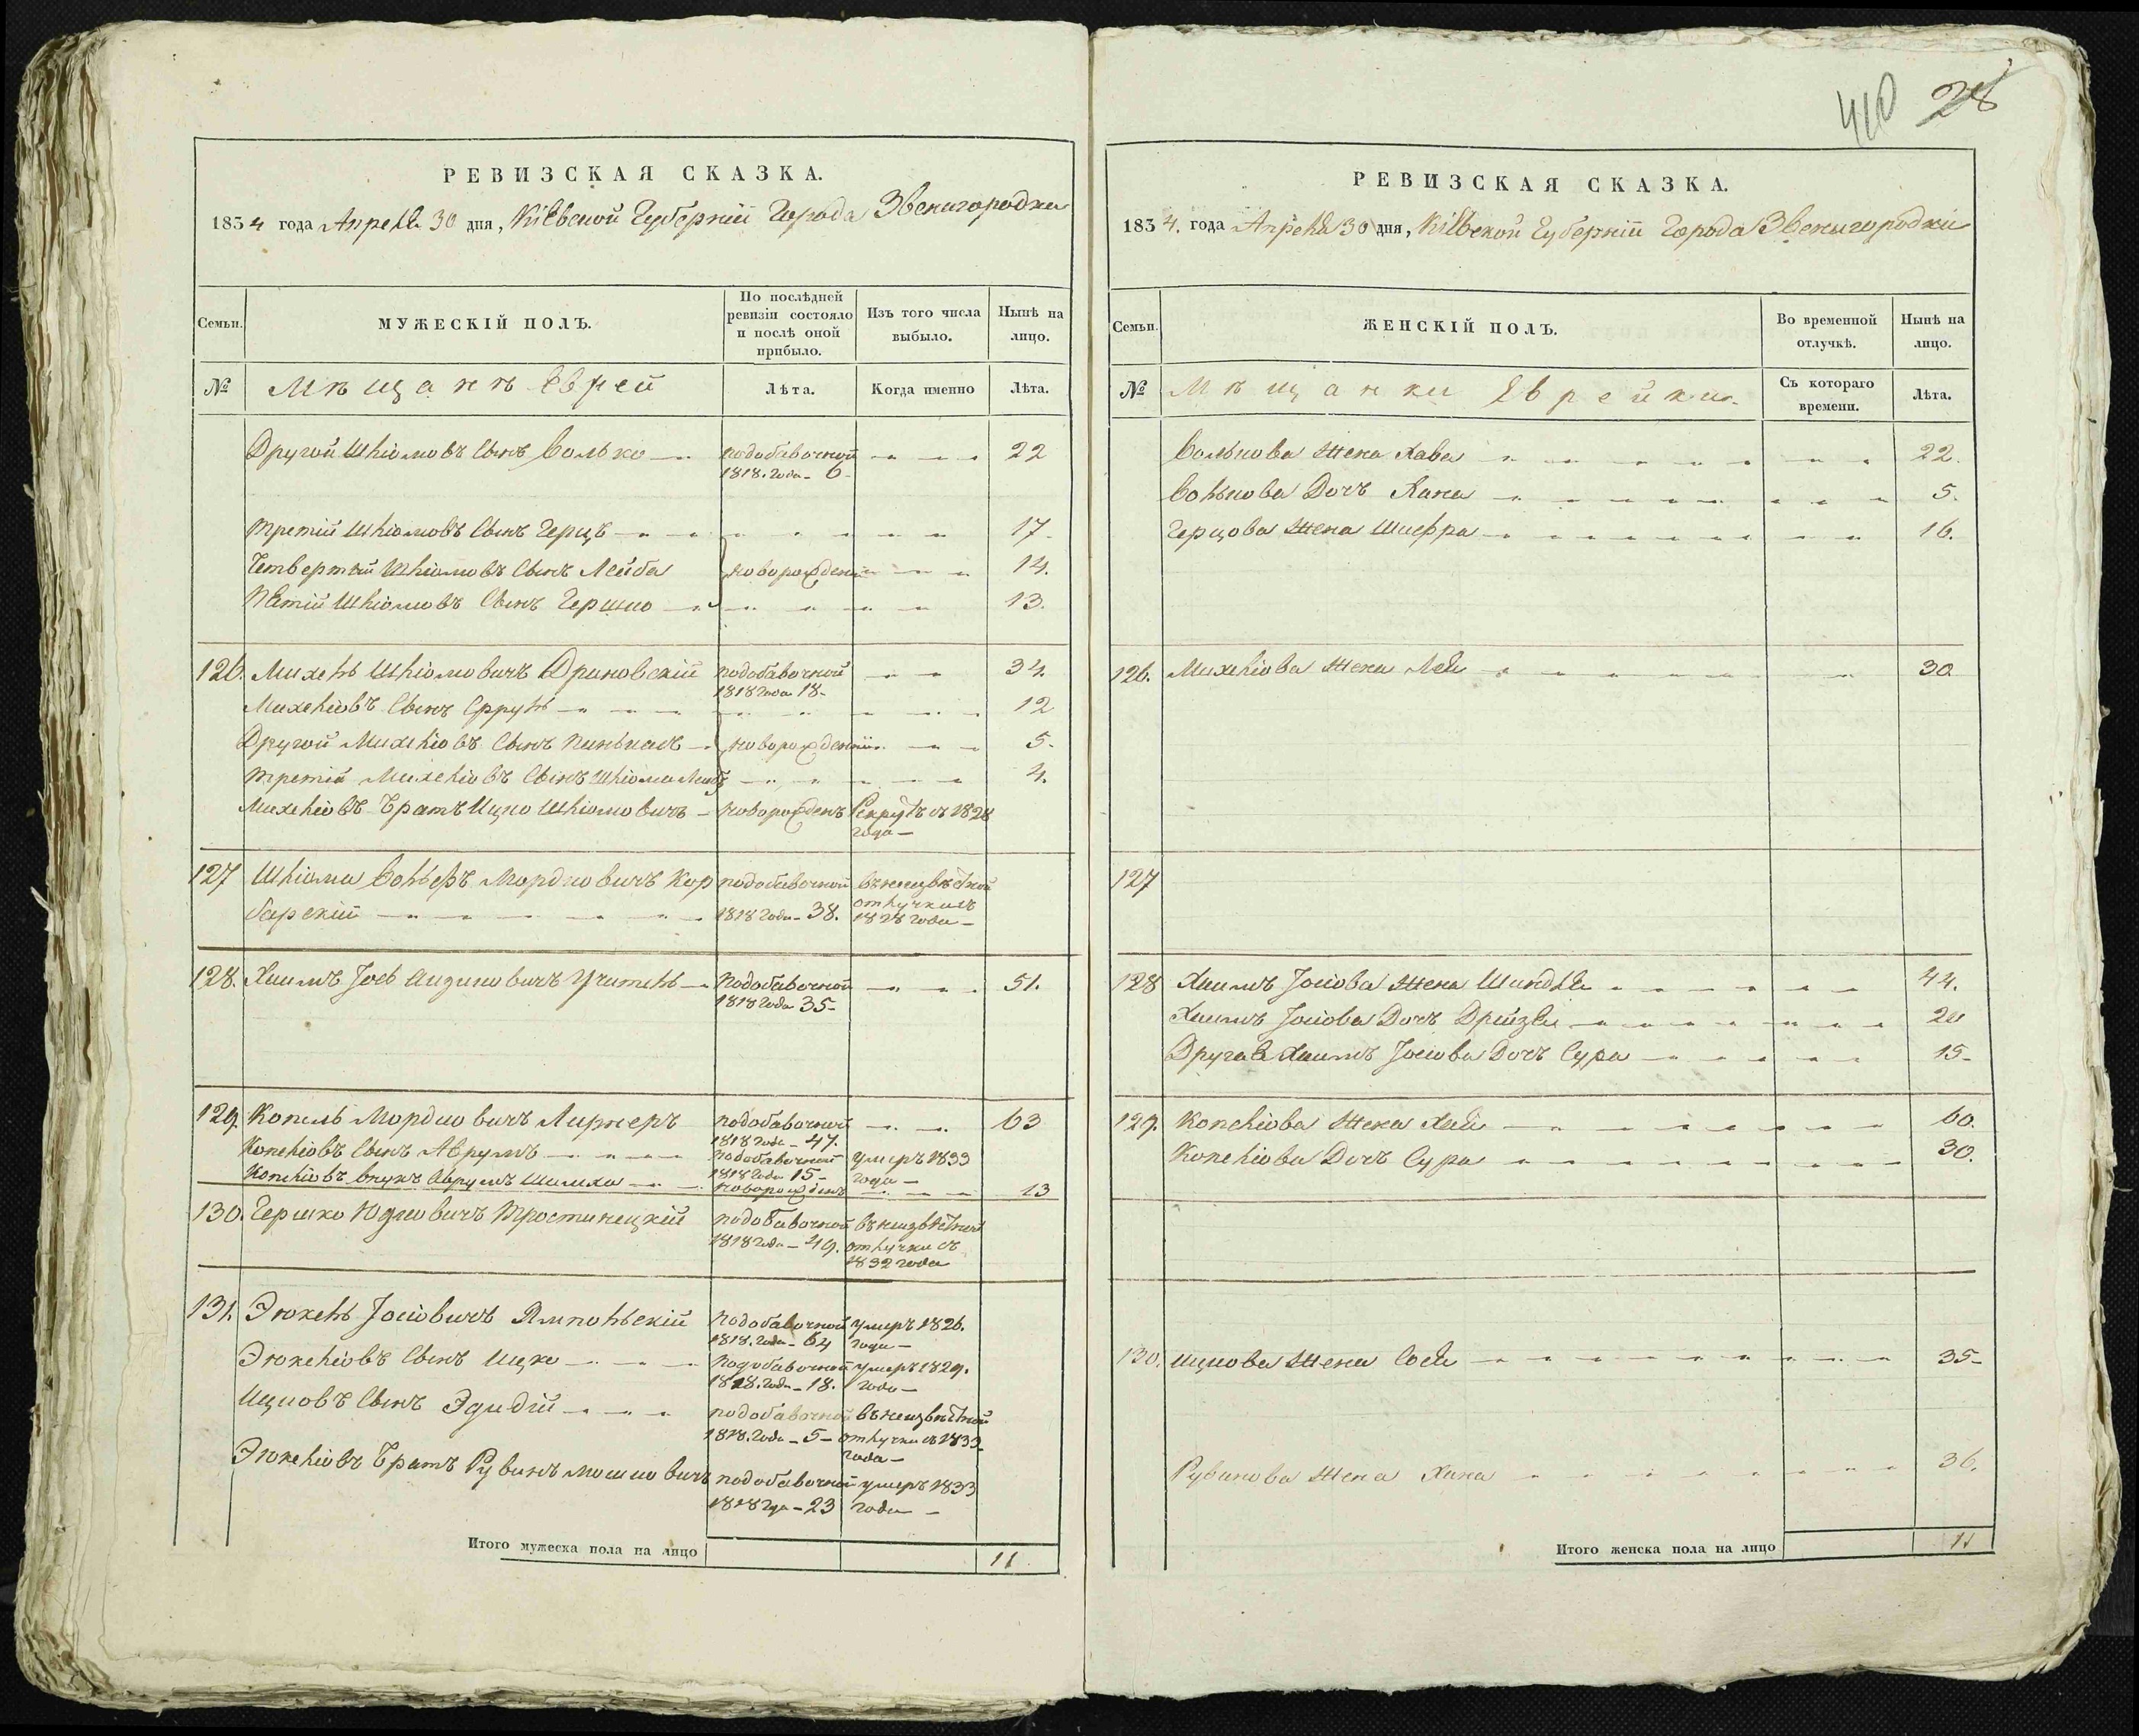 410 28
РЕВИЗСКАЯ СКАЗКА.
1834 года Апреля 30 дня, Кіевской Губерніи Города Звенигородки
Семьи.
МУЖЕСКІЙ ПОЛЪ.
По послѣдней ревизіи состояло и послѣ оной прибыло.
Изъ того числа выбыло.
Нынѣ на лицо.
№ Мѣщанѣ Евреи Лѣта. Когда именно Лѣта.
Другой Шліомовъ Сынъ Волько подобавочной 22
1818. Года - 6
третій Шліомовъ Сынъ Герцъ 17
Четвертый Шліомовъ Сынъ Лейба новорожденъ 14.
Пятій Шліомовъ Сынъ Гершко 13.
126. Михель Шліомовичъ Драновскій подобавочной 34.
1818 Года 18
Михеліовъ Сынъ Сруль 12
Другой Михеліовъ Сынъ Пинькасъ новорожденній 5.
третій Михеліовъ Сынъ Шліома Лейбъ 4.
Михеліовъ Братъ Ицко Шліомовичъ новорожденъ Рекрутъ съ 1828
года
127 Шліома Вольфъ Мордковичъ Кор подобавочной въ неизвѣстной
сарскій 1818 Года - 38. отлучки съ
1828 Года
128. Хаимъ Іось Айзиковичъ Учитель подобавочной 51.
1818 года 35
129. Копель Мордковичъ Лирнеръ подобавочной 63
1818 года - 47.
Копеліовъ Сынъ Аврумъ подобавочной умеръ 1833
1818 Года 15 года
Копеліовъ внукъ Аврумъ Шимха новорожденъ 13
130. Гершко Юдковичъ Тростинецкій подобавочной въ неизвѣстной
1818 года - 49. отлучки съ
1832 года
131. Зюкель Іосіовичъ Ямпольскій подобавочной умеръ 1826.
1818. Года - 64 года
Зюкеліовъ Сынъ Ицко подобавочной умеръ 1829.
1818. Года - 18. года
Ицковъ Сынъ подобавочной въ неизвѣстной
1818. Года - 5 отлучки съ 1833
года
Зюкеліовъ Братъ Рувинъ Мошковичъ подобавочной умеръ 1833
1818 года - 23 года
Итого мужеска пола на лицо 11
РЕВИЗСКАЯ СКАЗКА.
1834. года Апреля 30 дня, Кіевской Губерніи Города Звенигородки
Семьи.
ЖЕНСКІЙ ПОЛЪ.
Во временной отлучкѣ.
Нынѣ на лицо.
№ Мѣщанки Еврейки Съ котораго времени. Лѣта.
Волькова Жена Хава 22.
Волькова Дочъ Хана 5.
Герцова Жена Шифра 16.
126. Михеліова Жена Лея 30
127
128 Хаимъ Іосіова Жена Шиндля 44.
Хаимъ Іосіова Дочъ Дрейзя 20
Другая Хаимъ Іосіова Дочъ Сура 15
129. Копеліова Жена Хая 60.
Копеліова Дочъ Сура 30.
130. Ицкова Жена Сося 35
Рувинова Жена Хана 36.
Итого женска пола на лицо 11